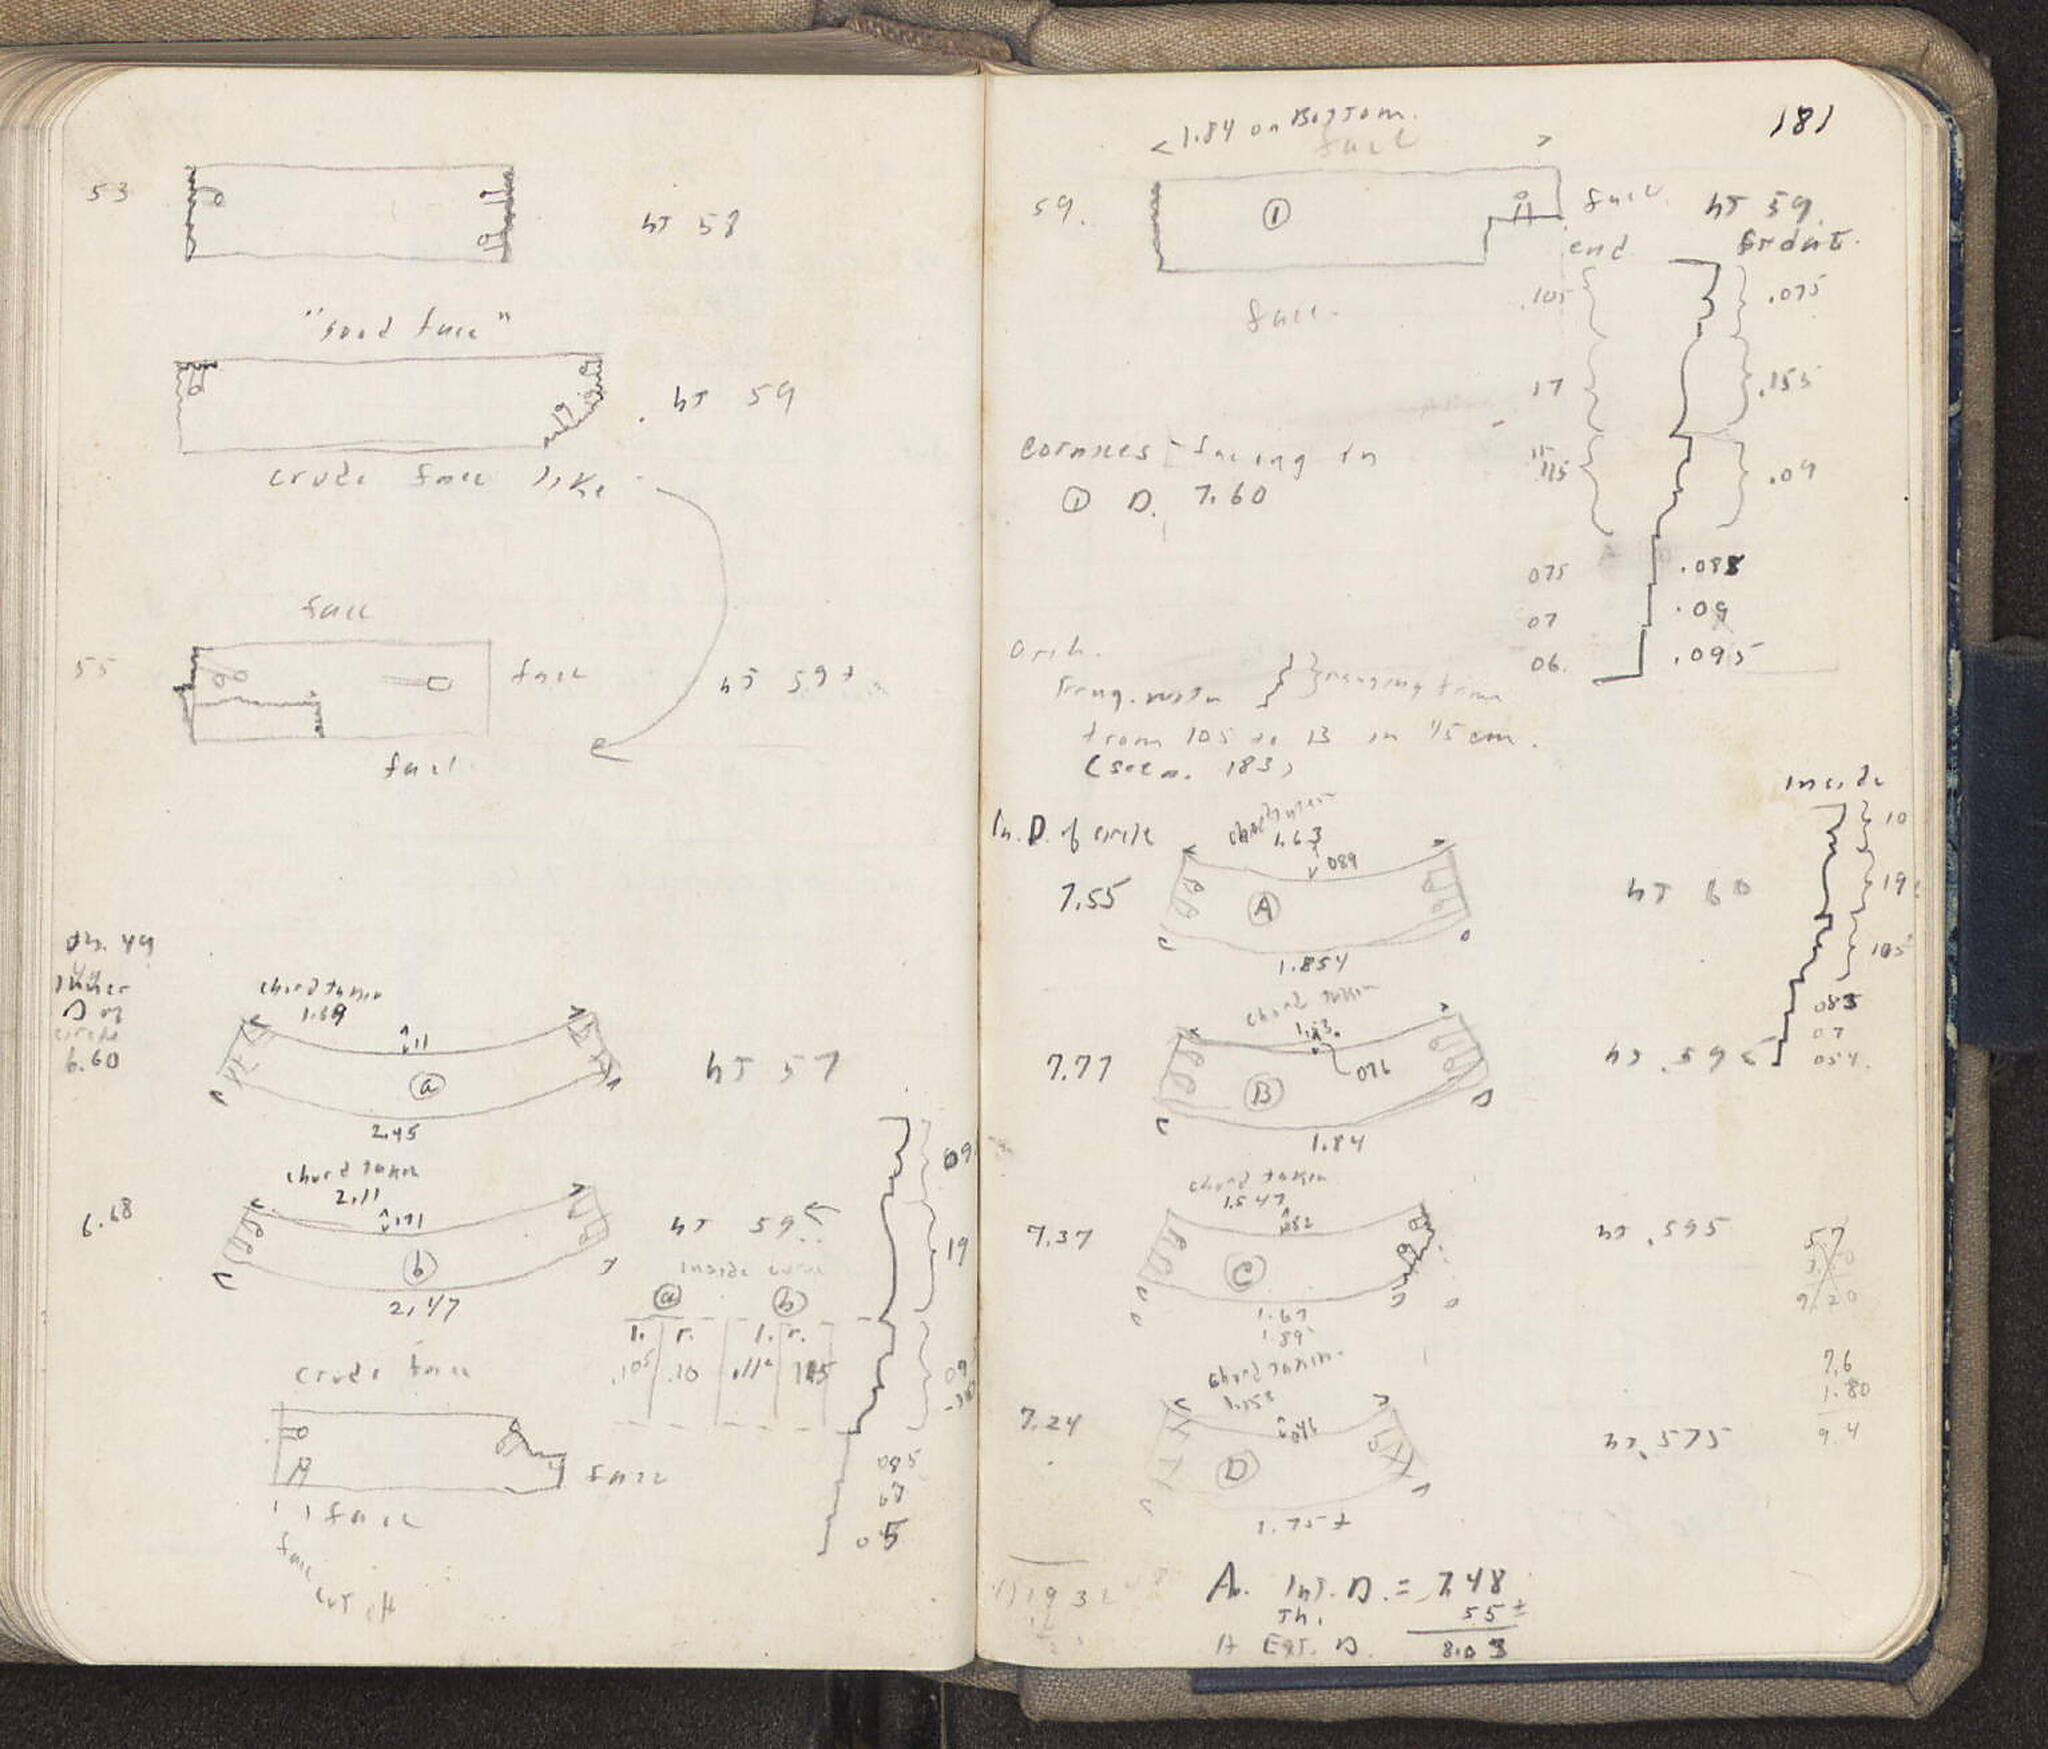 53
hT 58
"Good face"
hT 59
crude face like
face
55
face
hT 59 ±
face
th. 49
inner
D of
circle
6.60
chord taken
1.89
11
a
hT 57
2.45
09
chord taken
2.11
6.68
171
hT 59
19
b
inside curve
2.47
a b
l. r. l. r.
.105 .10 .11 115
09
crude face
085
face
05
face
face
cut off
181
< 1.84 on Bottom. >
face
59.
1
face
hT 59.
end
front.
.105
.075
face.
17
.155
cornices facing in
1 D. 7.60
115
.09
075
.088
07
.09
06.
.095
Orch.
ranging from
from 105 to 13 in 45 cm.
(see p. 183)
inside
In. D. of circle
chord taken
1.63
089
10
7.55
A
hT 60
19
1.854
105
chord taken
7.77
076
B
hT .59
085
07
054.
1.84
chord taken
1.547
052
7.37
C
hT .595
57
9.20
1.67
1.89
chord taken
1.153
046
7.24
D
hT .575
7.6
1.80
9.4
1.75 ±
A. Int. D. = 7.48
Th. 55 ±
A Ext. D. 8.03